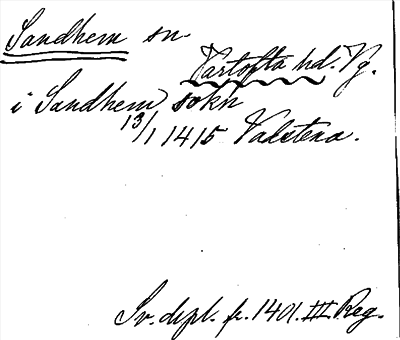 Sandhem sn.
Vartofta hd. Vg.
i Sandhem sokn
13/1 1415 Vadstena.
Sv. dipl. fr. 1401. III. Reg.